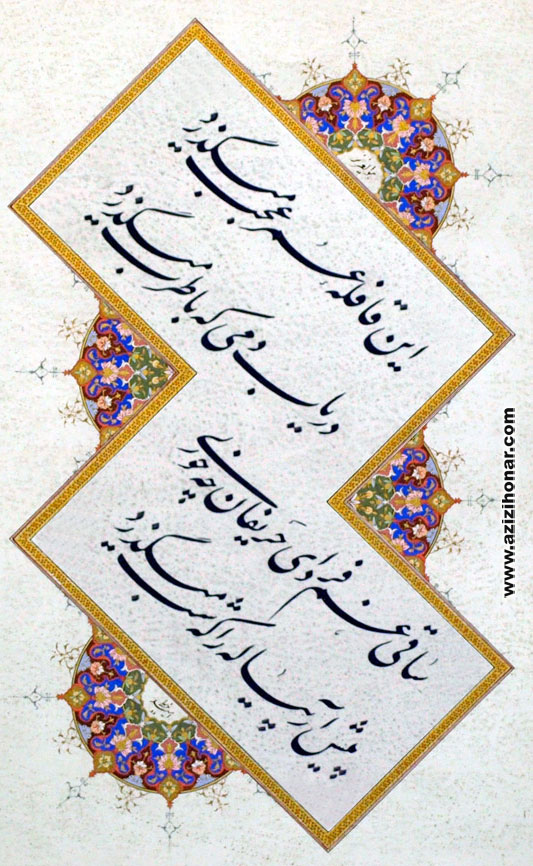 این قافله عمر عجب میگذرد
دریاب دمی که با طرب میگذرد
ساقی غم فردای حریفان چه خوری
پیش آر پیاله را که شب میگذرد
www.azizihonar.com